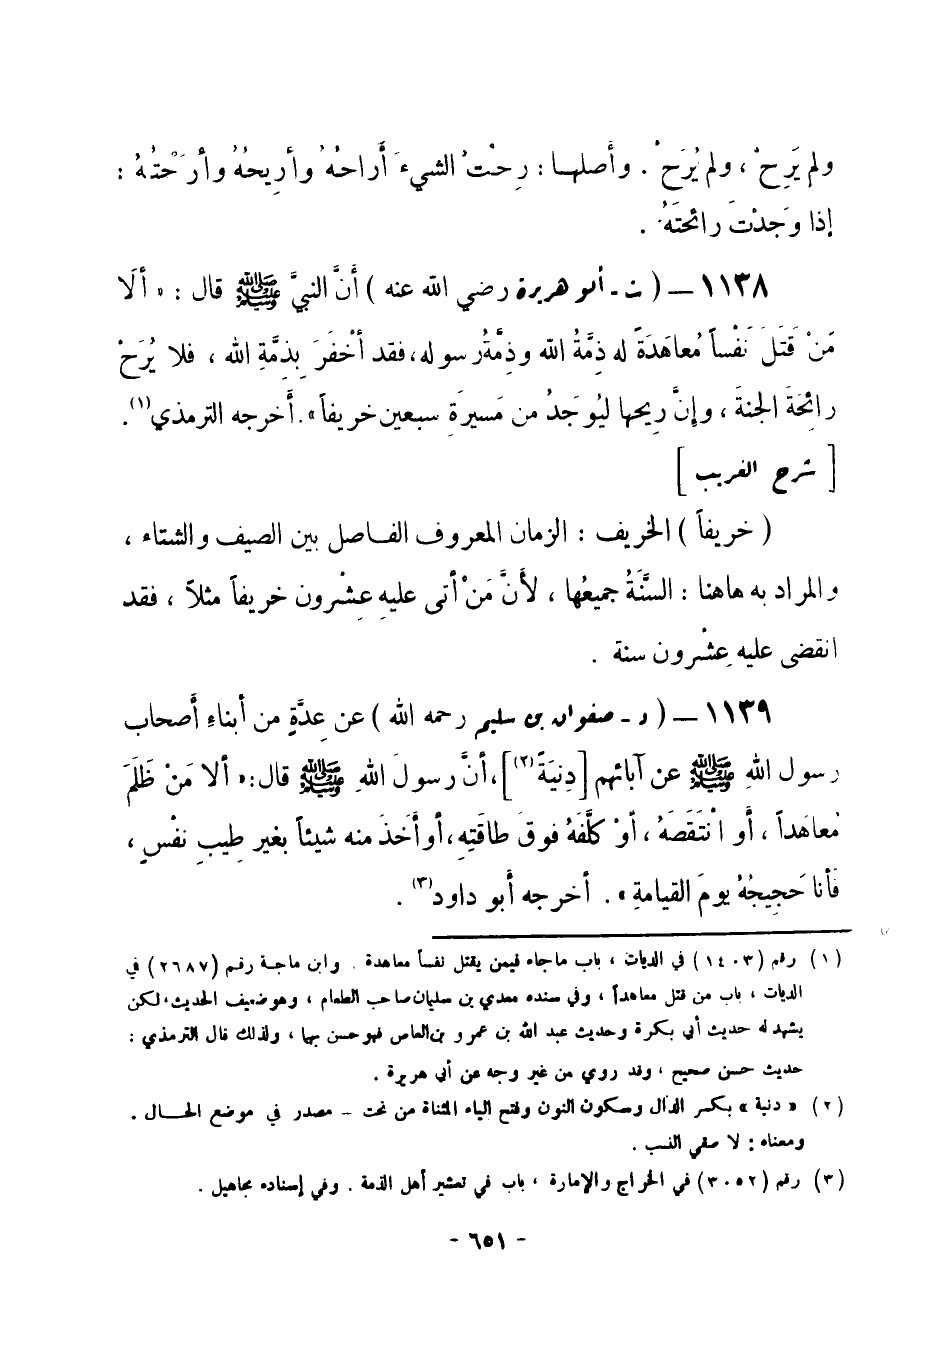 ولم يَرِحْ ، ولم يُرَحْ . وأصلهـا : رِحْتُ الشيءَ أَراحُهُ وأريحُهُ وأرَحْتُهُ :
إذا وَجَدْتَ رائحتَهُ .
١١٣٨ – ( ت - أبو هريرة رضي الله عنه ) أنَّ النبيَّ ﷺ قال : « ألَا
مَنْ قَتَلَ نَفْساً مُعاهَدَةً له ذِمَّةُ الله وذِمَّةُ رسوله ، فقد أخْفَرَ بِذمَّةِ الله ، فلا يُرَحْ
رائحَةَ الجنةَ ، وإنَّ رِيحها ليُوجَدُ من مَسيرَةِ سبعين خريفاً » . أخرجه الترمذي (١) .
[ شرح الغريب ]
( خريفاً ) الخريف : الزمان المعروف الفـاصل بين الصيف والشتاء ،
والمراد به هاهنا : السَّنَةُ جميعُها ، لأنَّ مَنْ أتى عليهِ عِشْرون خريفاً مثلاً ، فقد
انقضى عليه عِشْرون سنة .
١١٣٩ – ( د - صفوان بن سليم رحمه الله ) عن عِدَّةٍ من أبناءِ أصحاب
رسول اللهِ ﷺ عن آبائهم [ دِنيَةً (٢) ] ، أنَّ رسولَ اللهِ ﷺ قال : « ألا مَنْ ظَلَمَ
مُعاهَداً ، أو انْتَقَصَهُ ، أوْ كلَّفَهُ فوقَ طاقَتِهِ ، أو أخَذَ منه شيئاً بغير طِيبِ نفْسٍ ،
فأنا حَجِيجُهُ يومَ القيامةِ » . أخرجه أبو داود (٣) .
(١) رقم (١٤٠٣) في الديات ، باب ماجاء فيمن يقتل نفساً معاهدة . وابن ماجة رقم (٢٦٨٧) في
الديات ، باب من قتل معاهداً ، وفي سنده معدي بن سليمان صاحب الطعام ، وهو ضعيف الحديث ، لكن
يشهد له حديث أبي بكرة وحديث عبد الله بن عمرو بن العاص فهو حسن بهما ، ولذلك قال الترمذي :
حديث حسن صحيح ، وقد روي من غير وجه عن أبي هريرة .
(٢) « دنية » بكسر الدال وسكون النون وفتح الياء المثناة من تحت – مصدر في موضع الحـال .
ومعناه : لا صقي النسب .
(٣) رقم (٣٠٥٢) في الخراج والإمارة ، باب في تعشير أهل الذمة . وفي إسناده مجاهيل .
- ٦٥١ -